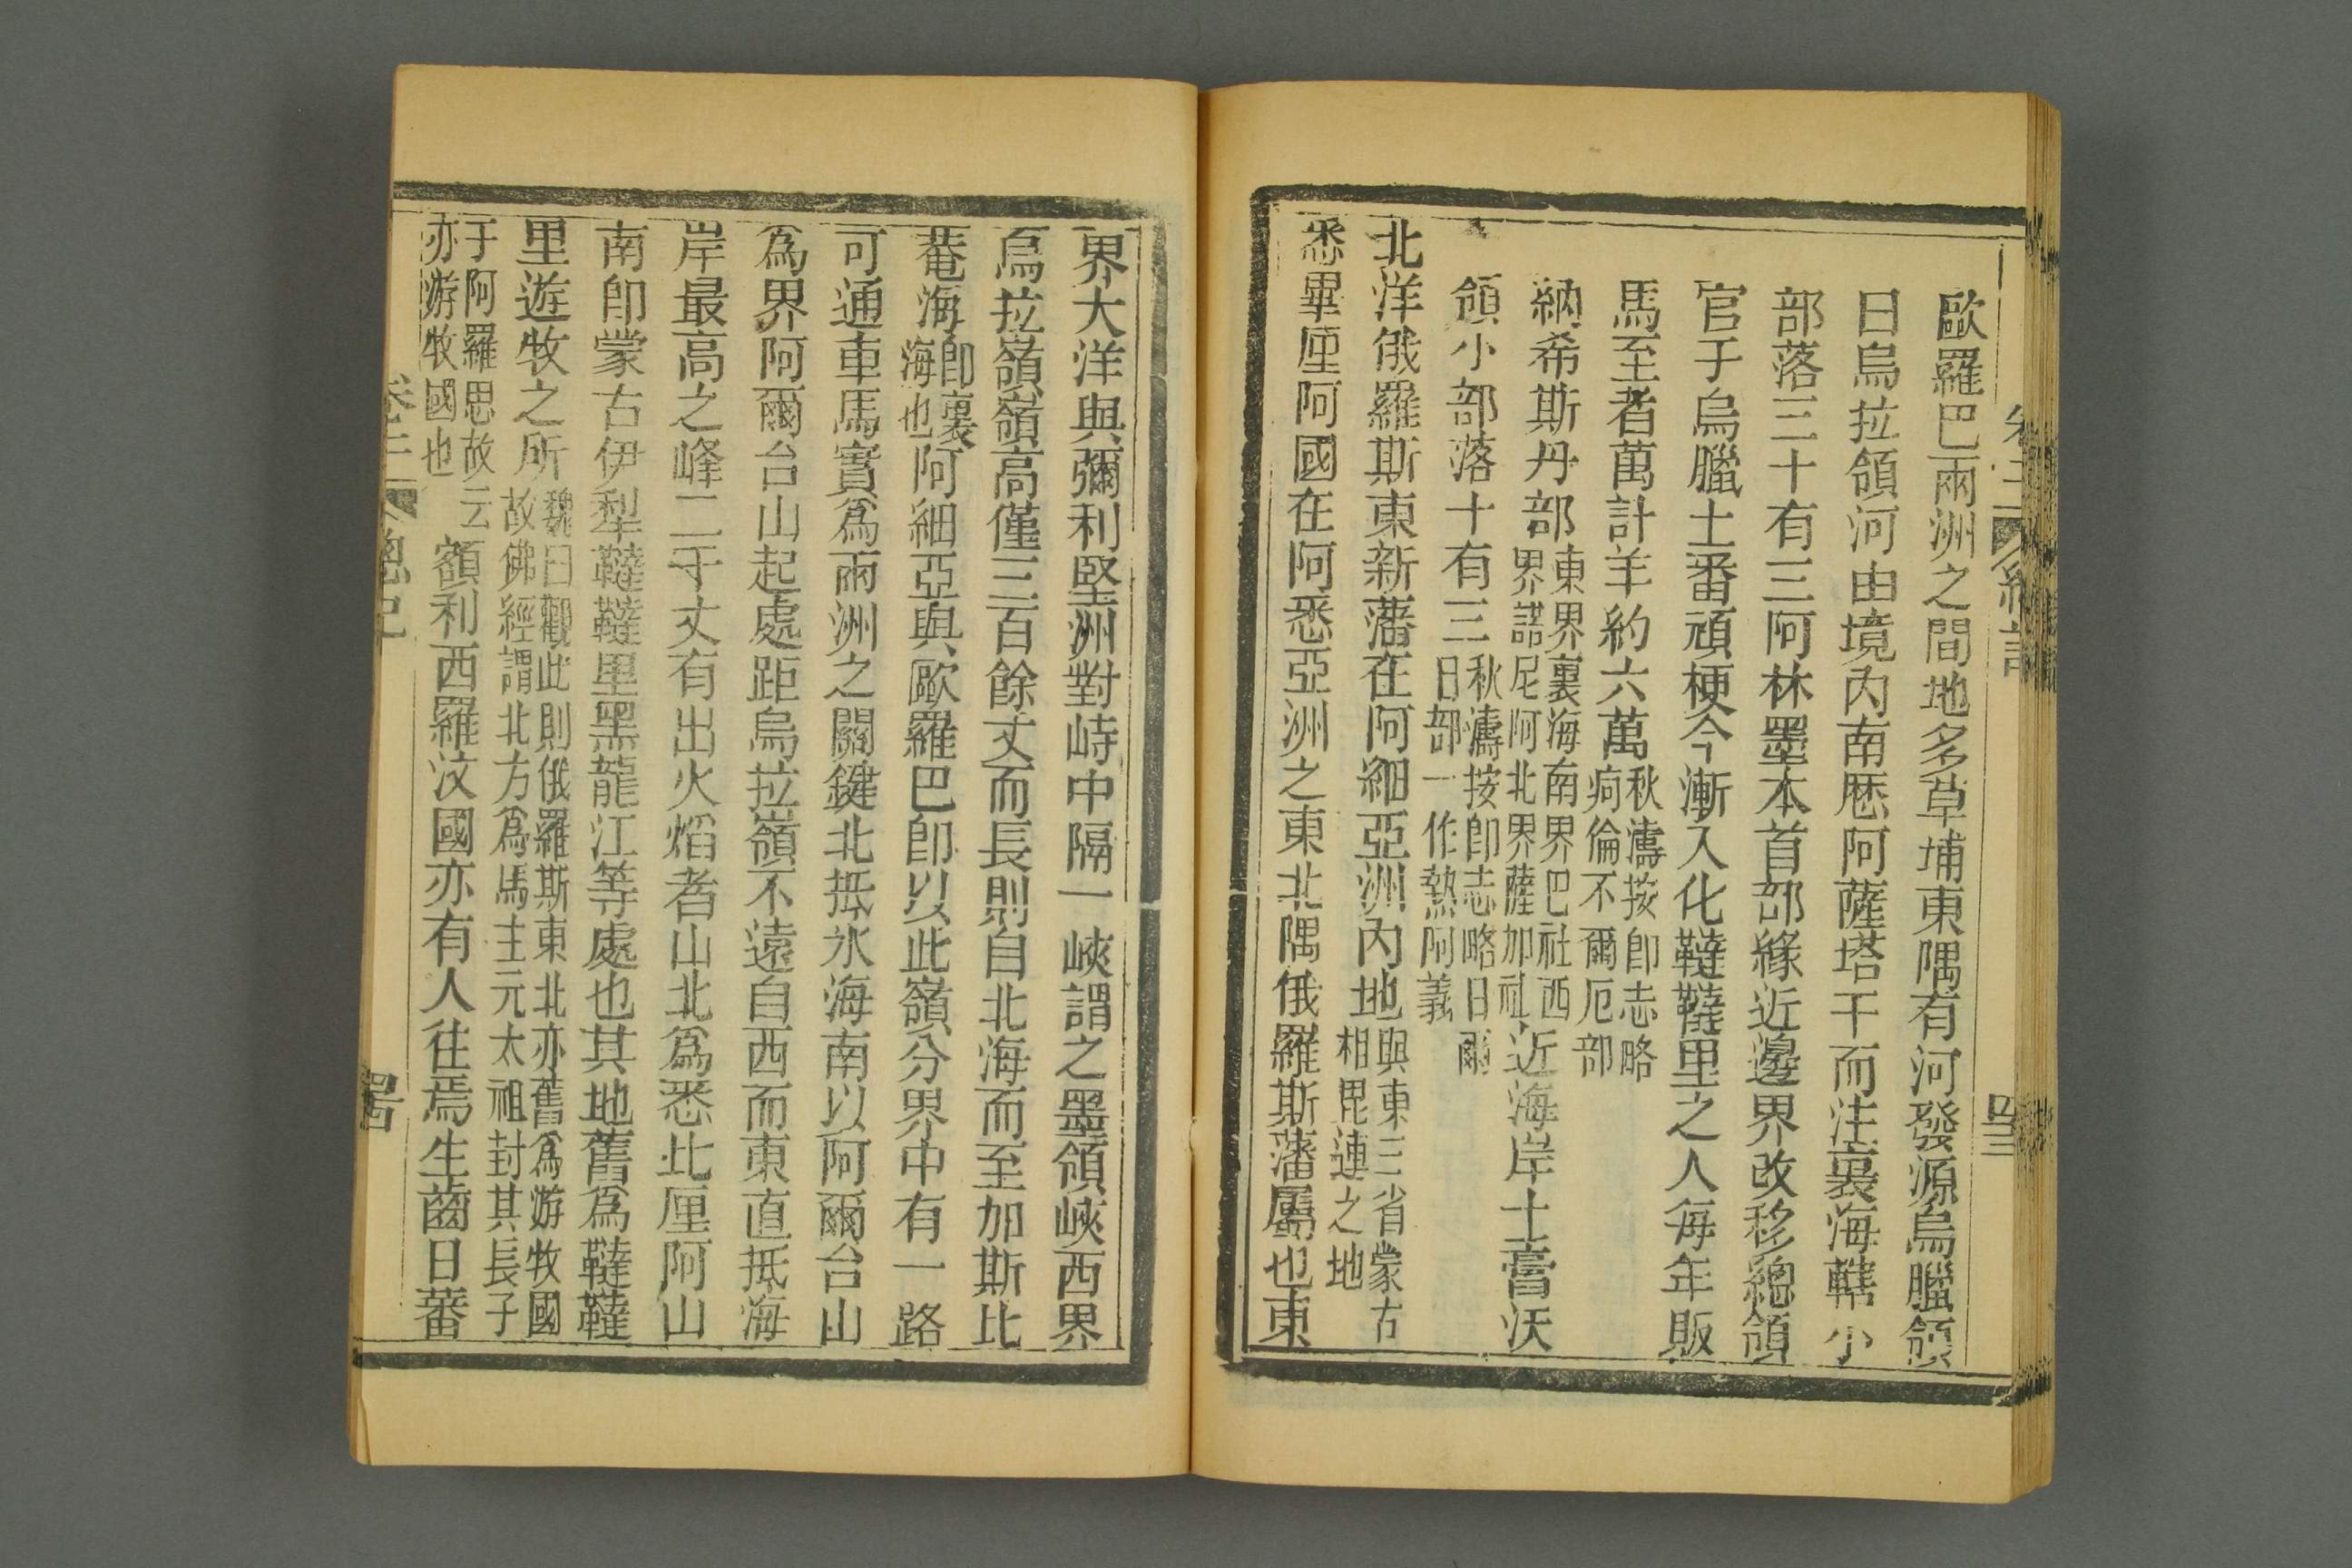 歐羅巴兩洲之間地多草埔東隅有河發源烏臘領
曰烏拉領河由境內南厯阿薩塔干而注裏海轄小
部落三十有三阿林墨本首部緣近邊界改移總領
官于烏臘土番頑梗今漸入化韃韃里之人每年販
馬至者萬計羊約六萬秋濤按卽志略疴倫不爾厄部
納希斯丹部東界裏海南界巴社西界諾尼阿北界薩加社近海岸土膏沃
領小部落十有三秋濤按卽志略曰爾日部一作熱阿義
北洋俄羅斯東新藩在阿細亞洲內地與東三省蒙古相毘連之地
悉畢厘阿國在阿悉亞洲之東北隅俄羅斯藩屬也東
界大洋與彌利堅洲對峙中隔一峽謂之墨領峽西界
烏拉嶺嶺高僅三百餘丈而長則自北海而至加斯比
菴海卽裏海也阿細亞與歐羅巴卽以此嶺分界中有一路
可通車馬實爲兩洲之關鍵北抵氷海南以阿爾台山
爲界阿爾台山起處距烏拉嶺不遠自西而東直抵海
岸最高之峰二千丈有出火熖者山北爲悉比厘阿山
南卽蒙古伊犁韃韃里黑龍江等處也其地舊爲韃韃
里遊牧之所魏曰觀此則俄羅斯東北亦舊爲游牧國故佛經謂北方爲馬主元太祖封其長子
于阿羅思故云亦游牧國也額利西羅汶國亦有人往焉生齒日蕃